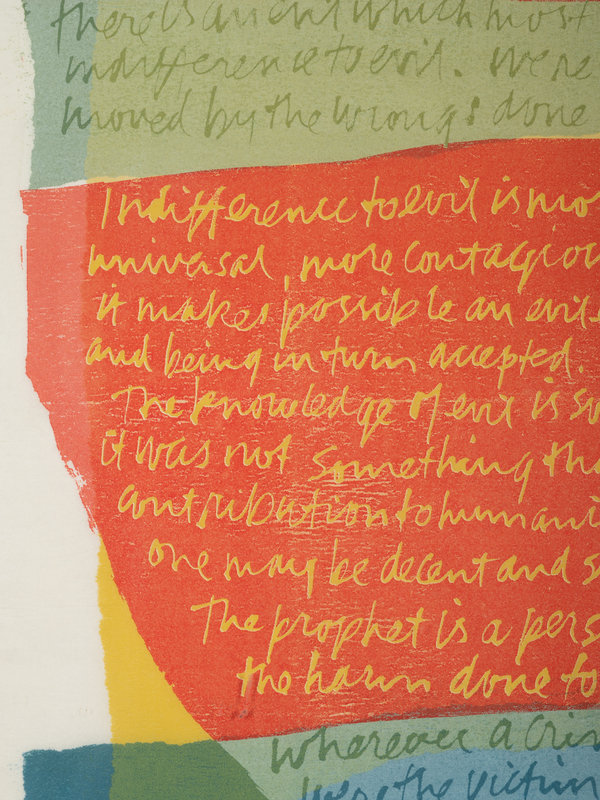 there is an evil which most
indifference to evil. We re
moved by the wrongs done
Indifference to evil is mo
universal, more contagiou
it makes possible an evil
and being in turn accepted.
The knowledge of evil is su
it was not something tha
contribution to humani
one may be decent and s
The prophet is a pers
the harm done to
whereever a crim
were the victim